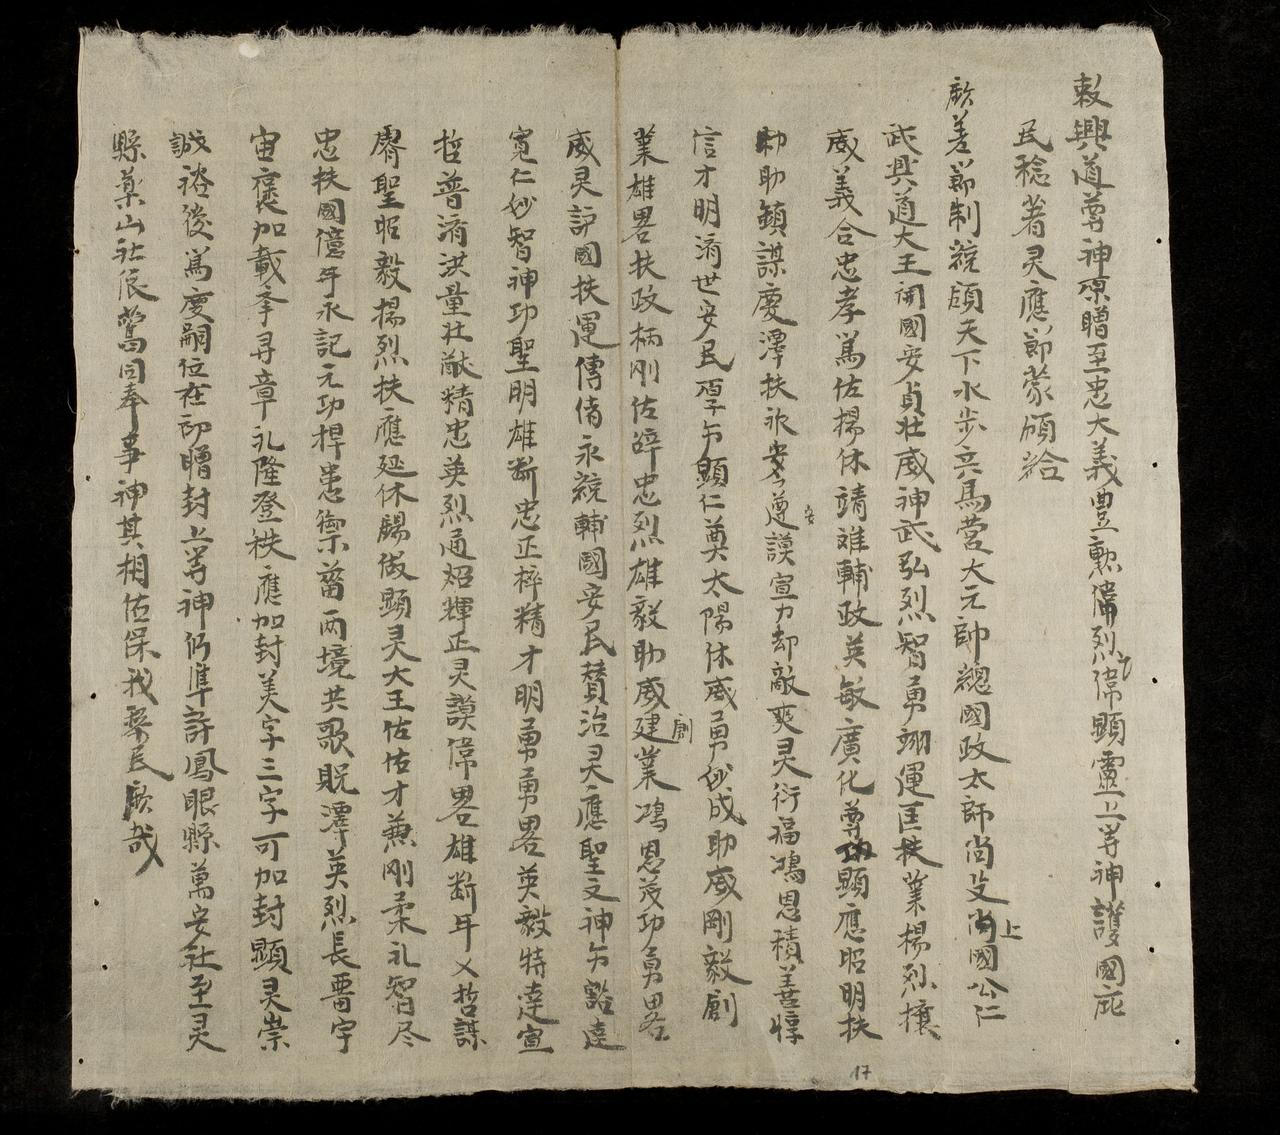 敕興道尊神原贈至忠大義豊勲偉烈偉顕靈上等神護國庇
民稔著灵應節蒙頒給
厥差節制統領天下水步兵馬营大元帥總國政太師尚父尚上國公仁
武興道大王開國安貞壮威神武弘烈智勇翊運匡扶業楊烈攘
威義合忠孝篤佐揚休靖难輔政英敏廣化尊功顕應昭明扶
勅助鎮謀慶澤扶永安遵謨宣力却敵爽灵衍福鴻恩積善惇
信才明濟世安民厚尔顕仁奠太陽休威勇妙成助威剛毅創
業雄畧扶政柄刚佐辟忠烈雄毅助威建業鴻恩茂功勇畧
威灵護國扶運傳倩永綂輔國安民賛治灵應聖文神尔豁達
寛仁妙智神功聖明雄断忠正梓精才明勇勇畧英毅特達宣
哲普濟洪量壮猷精忠英烈通炤輝正灵謨偉畧雄断年乂哲謀
膺聖昭毅揚烈扶應延休賜倣顕灵大王佐佐才兼刚柔礼智尽
忠扶國億年永記元功捍患御菑両境共歌貺澤英烈長畱宇
宙褒加載孝尋章礼隆登秩應加封美字三字可加封顕灵崇
誠裕後篤慶嗣位在即贈封上等神仍準許鳳眼縣萬安社至灵
縣藥山社依舊同奉事神其相佑保我黎民厥哉
17